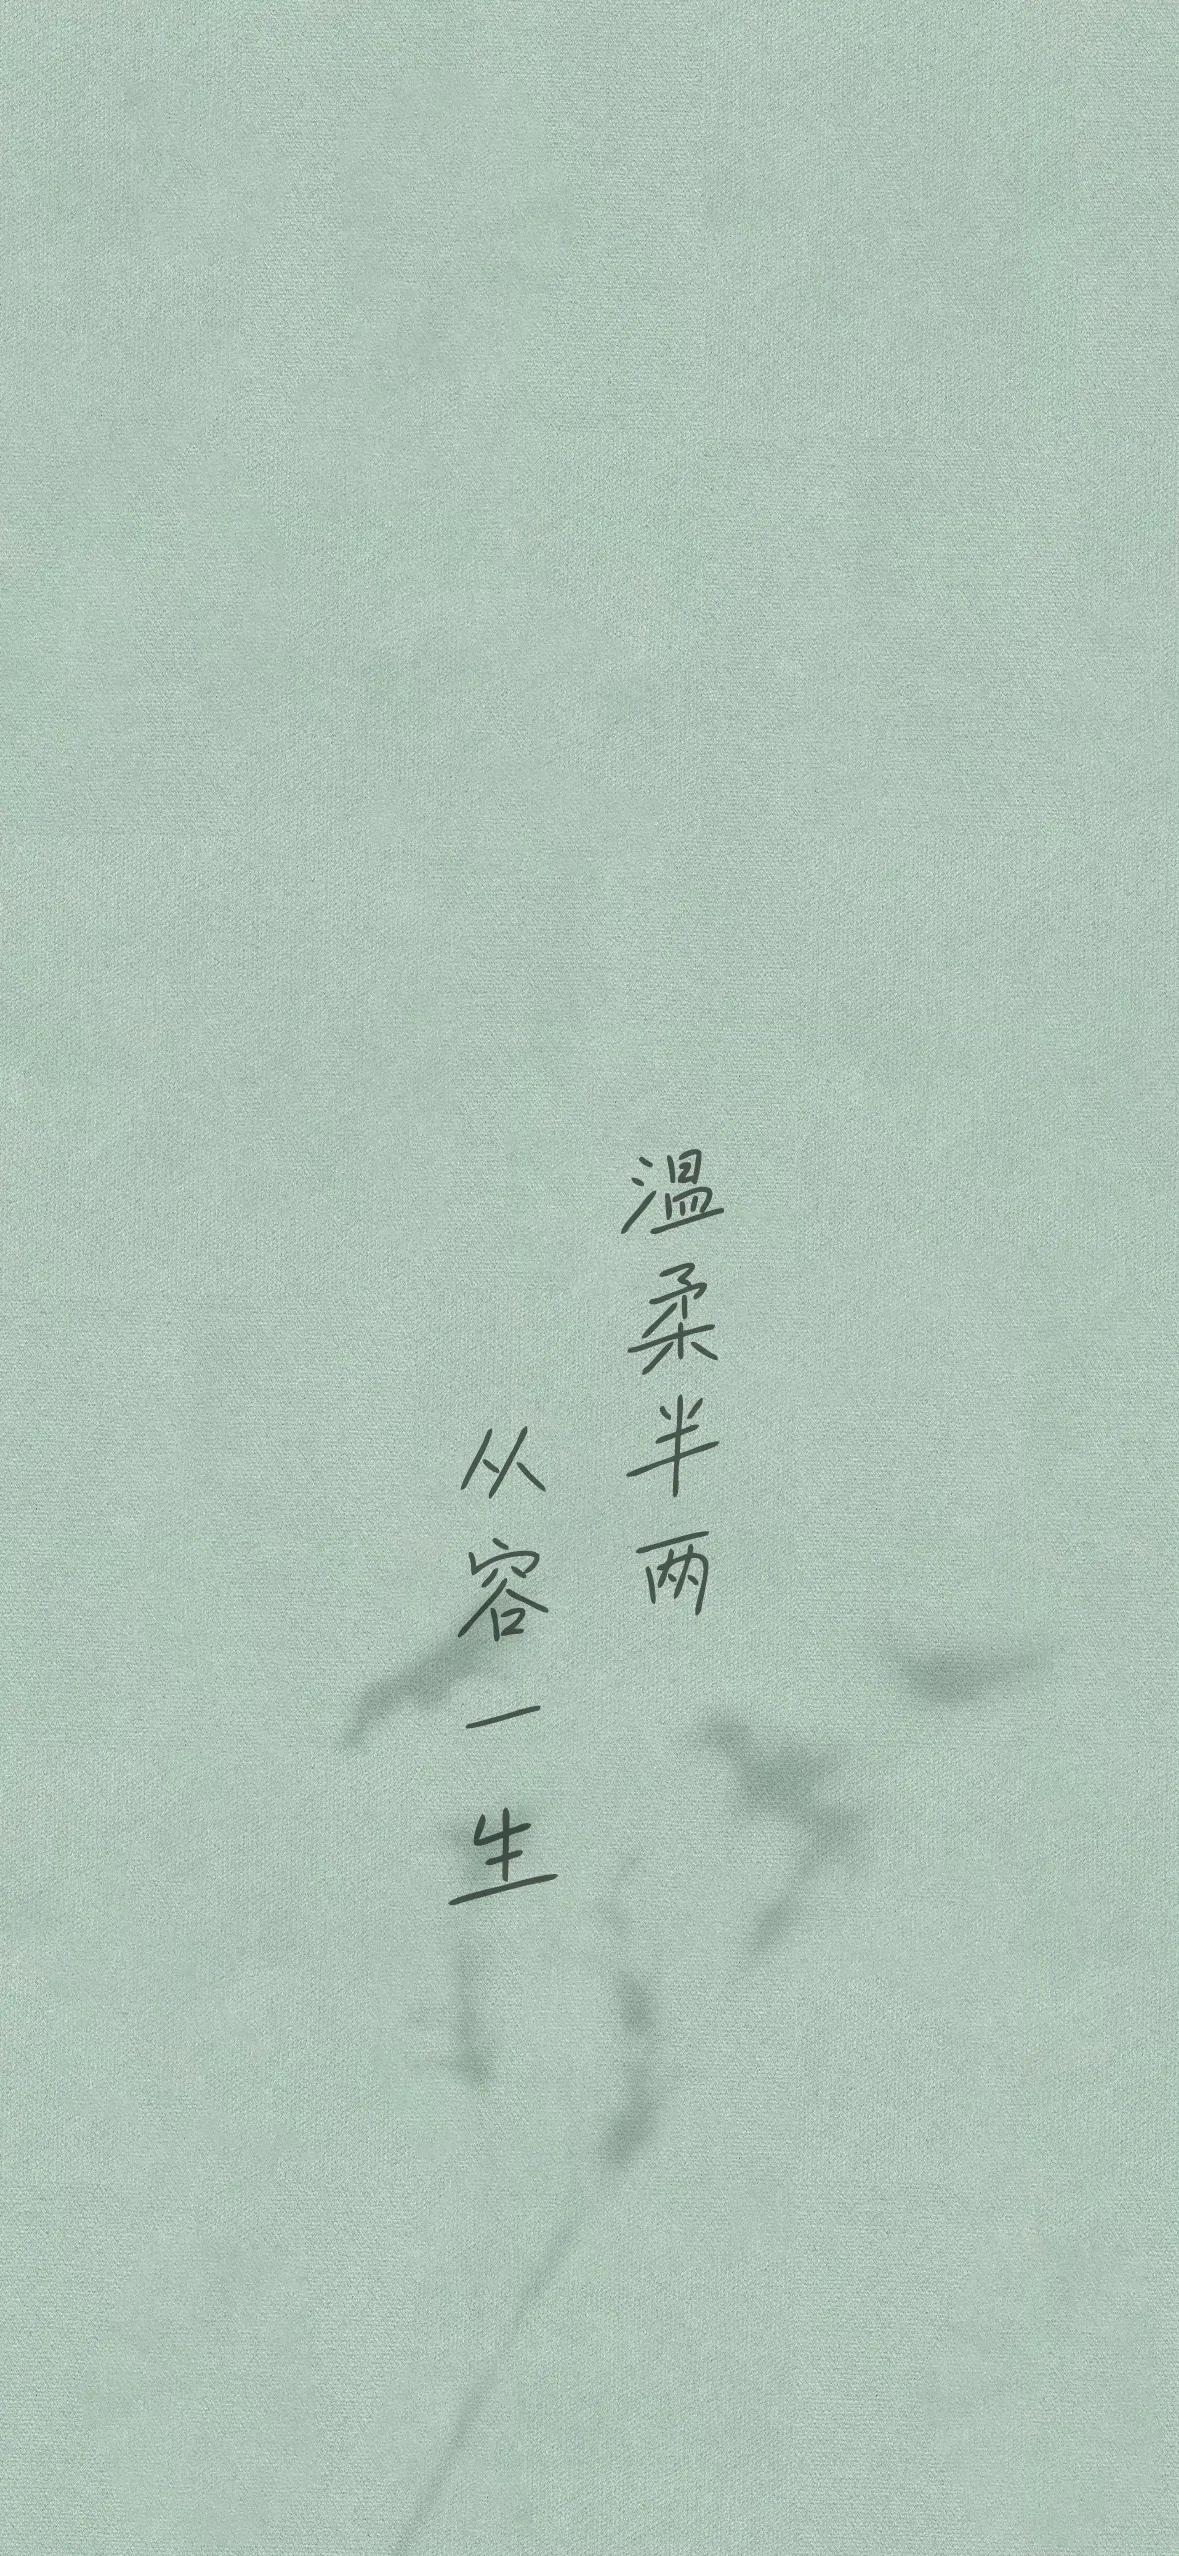 温柔半两
从容一生